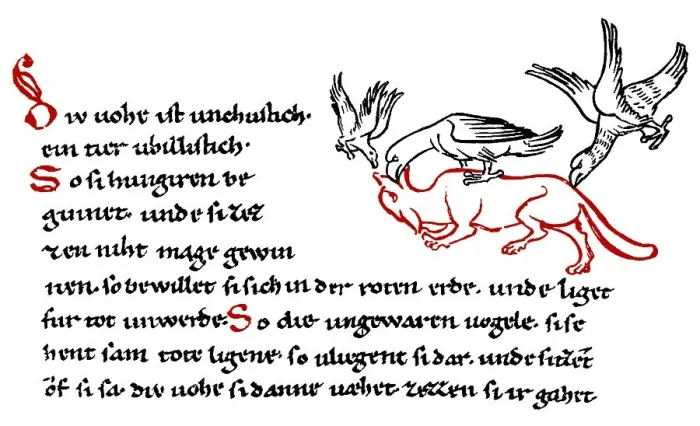 Diw uohe ist unchustich·
ein tier ubillistich·
So si hungiren be
ginnet· unde si zez
zen niht mage gewin
nen· so bewillet si sich in der roten erde· unde liget
fur tot unwerde· So die ungewaren uogele· si se
hent sam tote ligene· so uliegent si dar· unde sitzēt
ǒf si sa· die uohe si danne uæhet· zezzen si ir gahet·